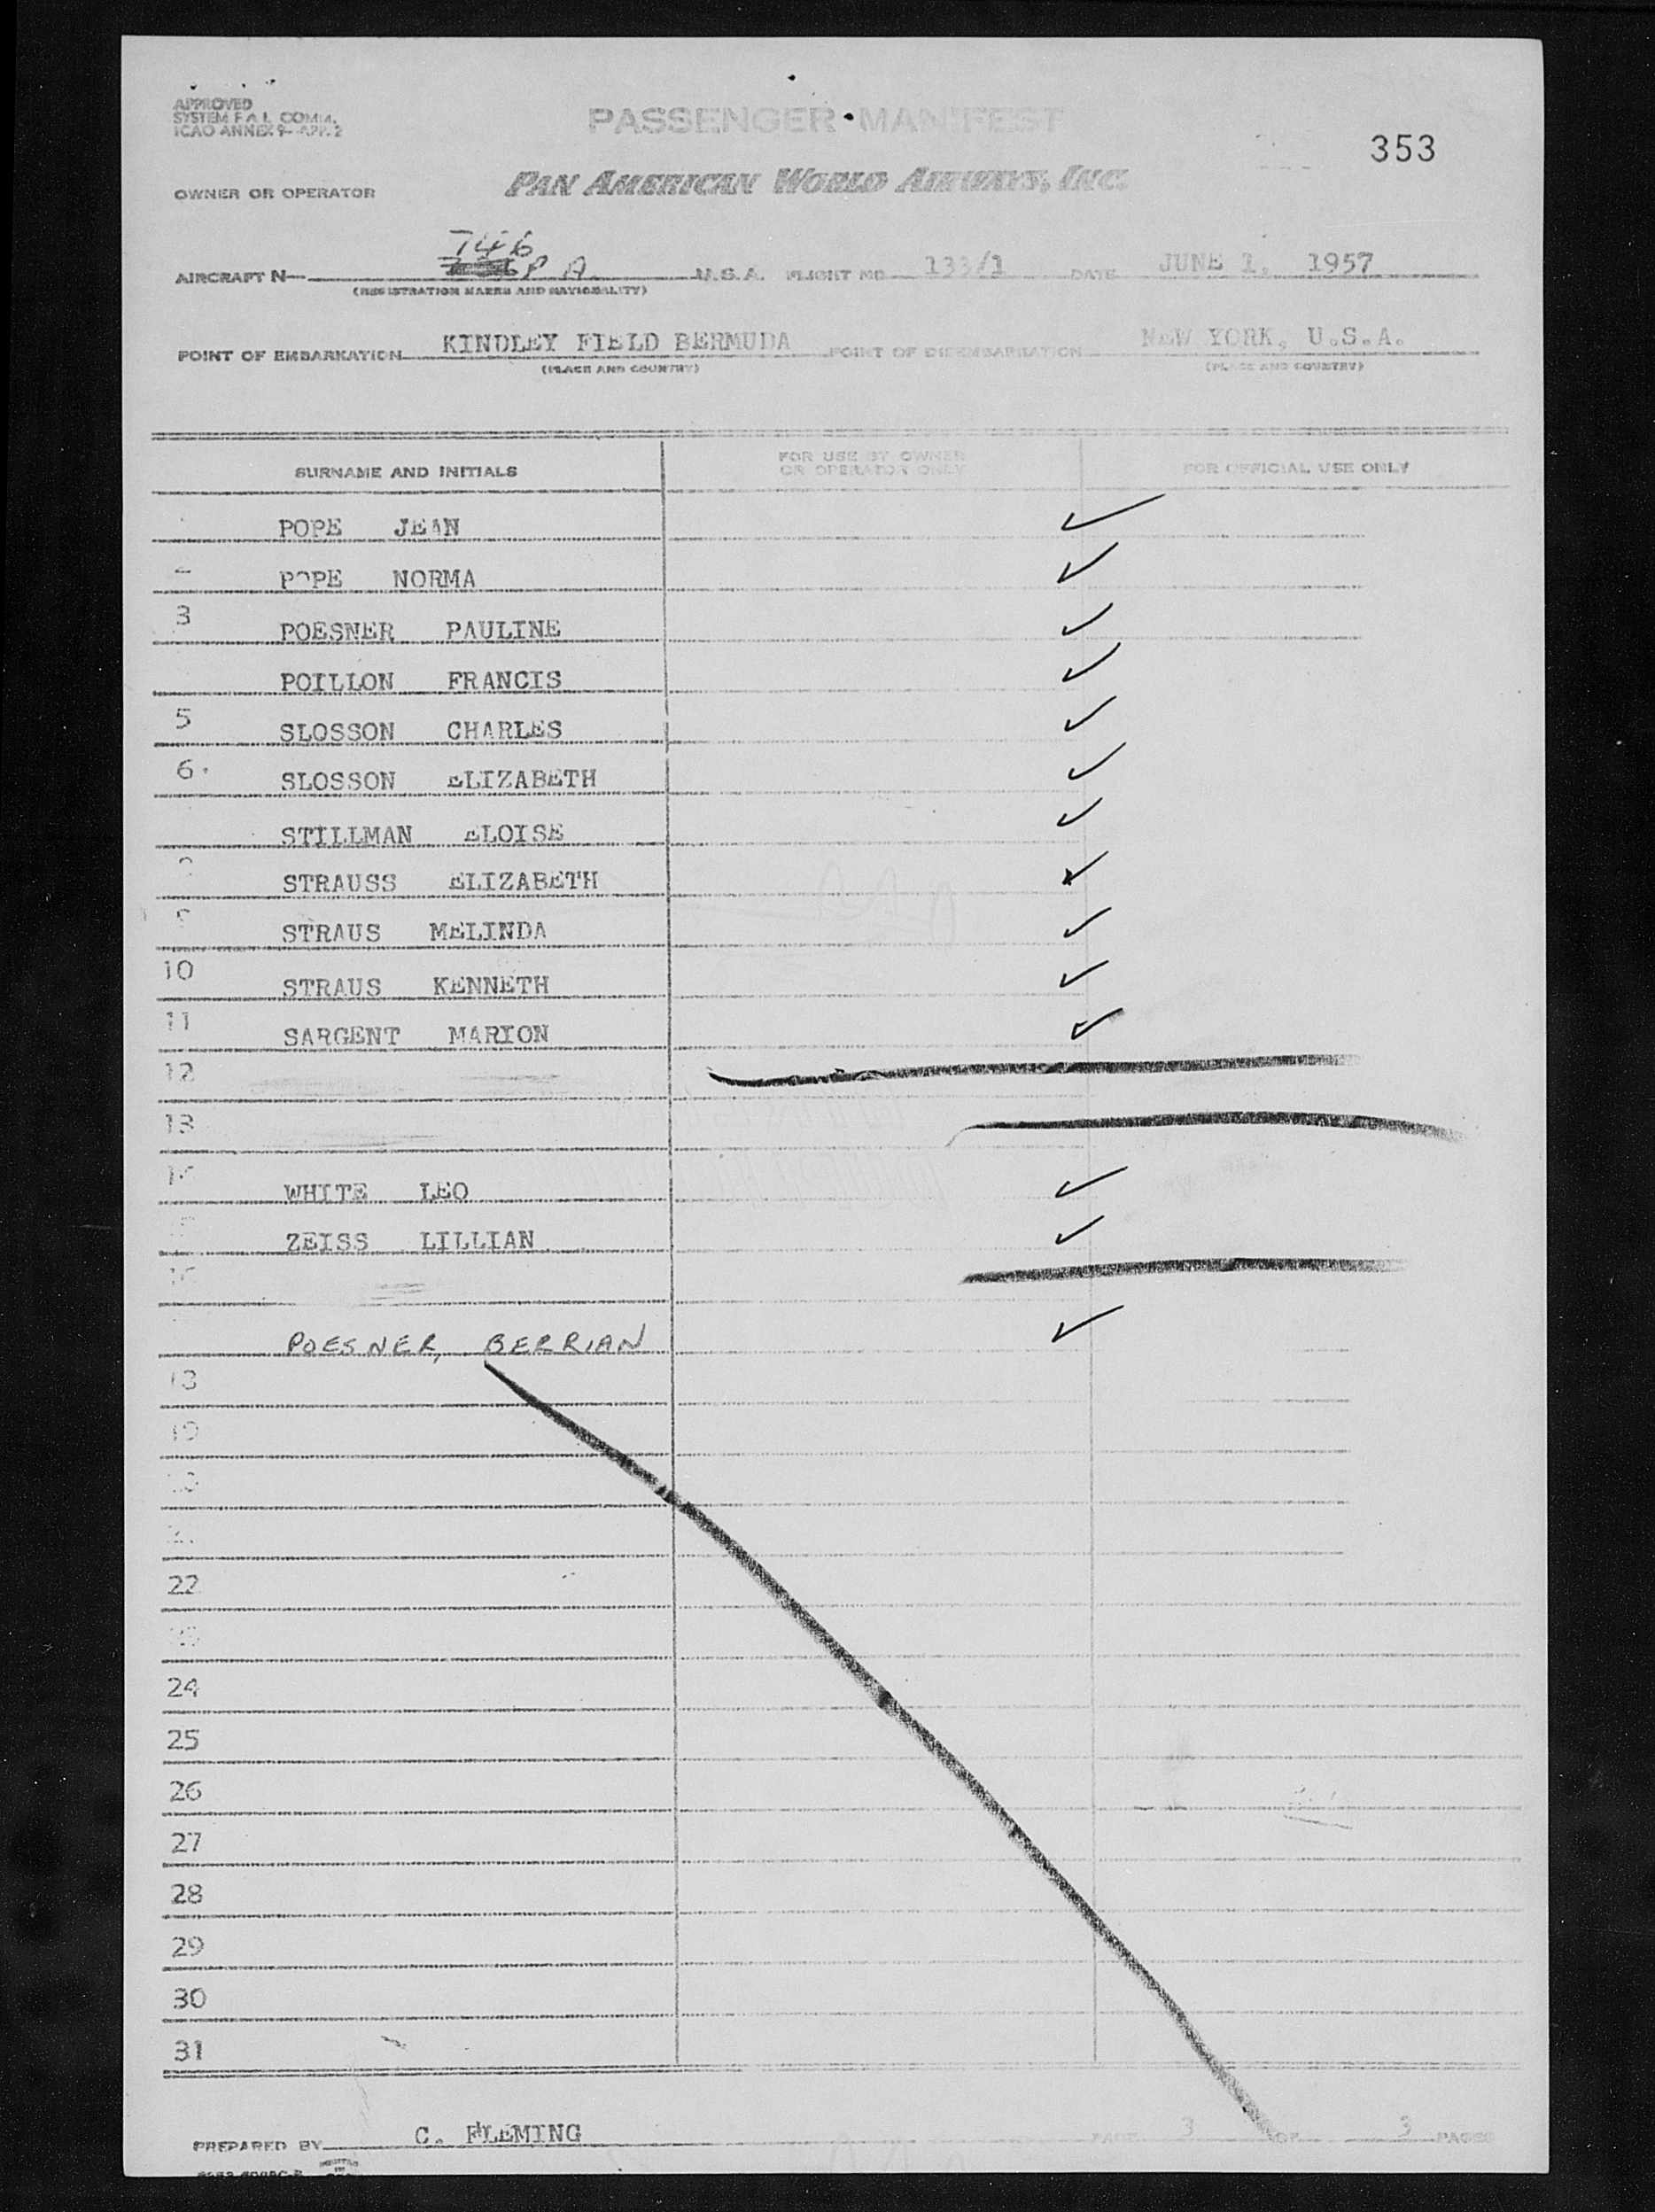 APPROVED
SYSTEM F A L COMM.
ICAO ANNEX 9- APP. 2
PASSENGER MANIFEST
353
OWNER OR OPERATOR PAN AMERICAN WORLD AIRWAYS, INC.
746
AIRCRAFT N P A U.S.A. FLIGHT NO 133/1 DATE JUNE 1, 1957
(REGISTRATION MARKS AND NATIONALITY)
POINT OF EMBARKATION KINDLEY FIELD BERMUDA POINT OF DISEMBARKATION NEW YORK, U.S.A.
(PLACE AND COUNTRY) (PLACE AND COUNTRY)
SURNAME AND INITIALS FOR USE BY OWNER OR OPERATOR ONLY FOR OFFICIAL USE ONLY
POPE JEAN
POPE NORMA
3 POESNER PAULINE
POILLON FRANCIS
5 SLOSSON CHARLES
6 SLOSSON ELIZABETH
STILLMAN ELOISE
STRAUSS ELIZABETH
9 STRAUS MELINDA
10 STRAUS KENNETH
11 SARGENT MARION
12
13
14 WHITE LEO
ZEISS LILLIAN
16
POESNER, BERRIAN
18
19
20
22
24
25
26
27
28
29
30
31
PREPARED BY C. FLEMING PAGE 3 OF 3 PAGES